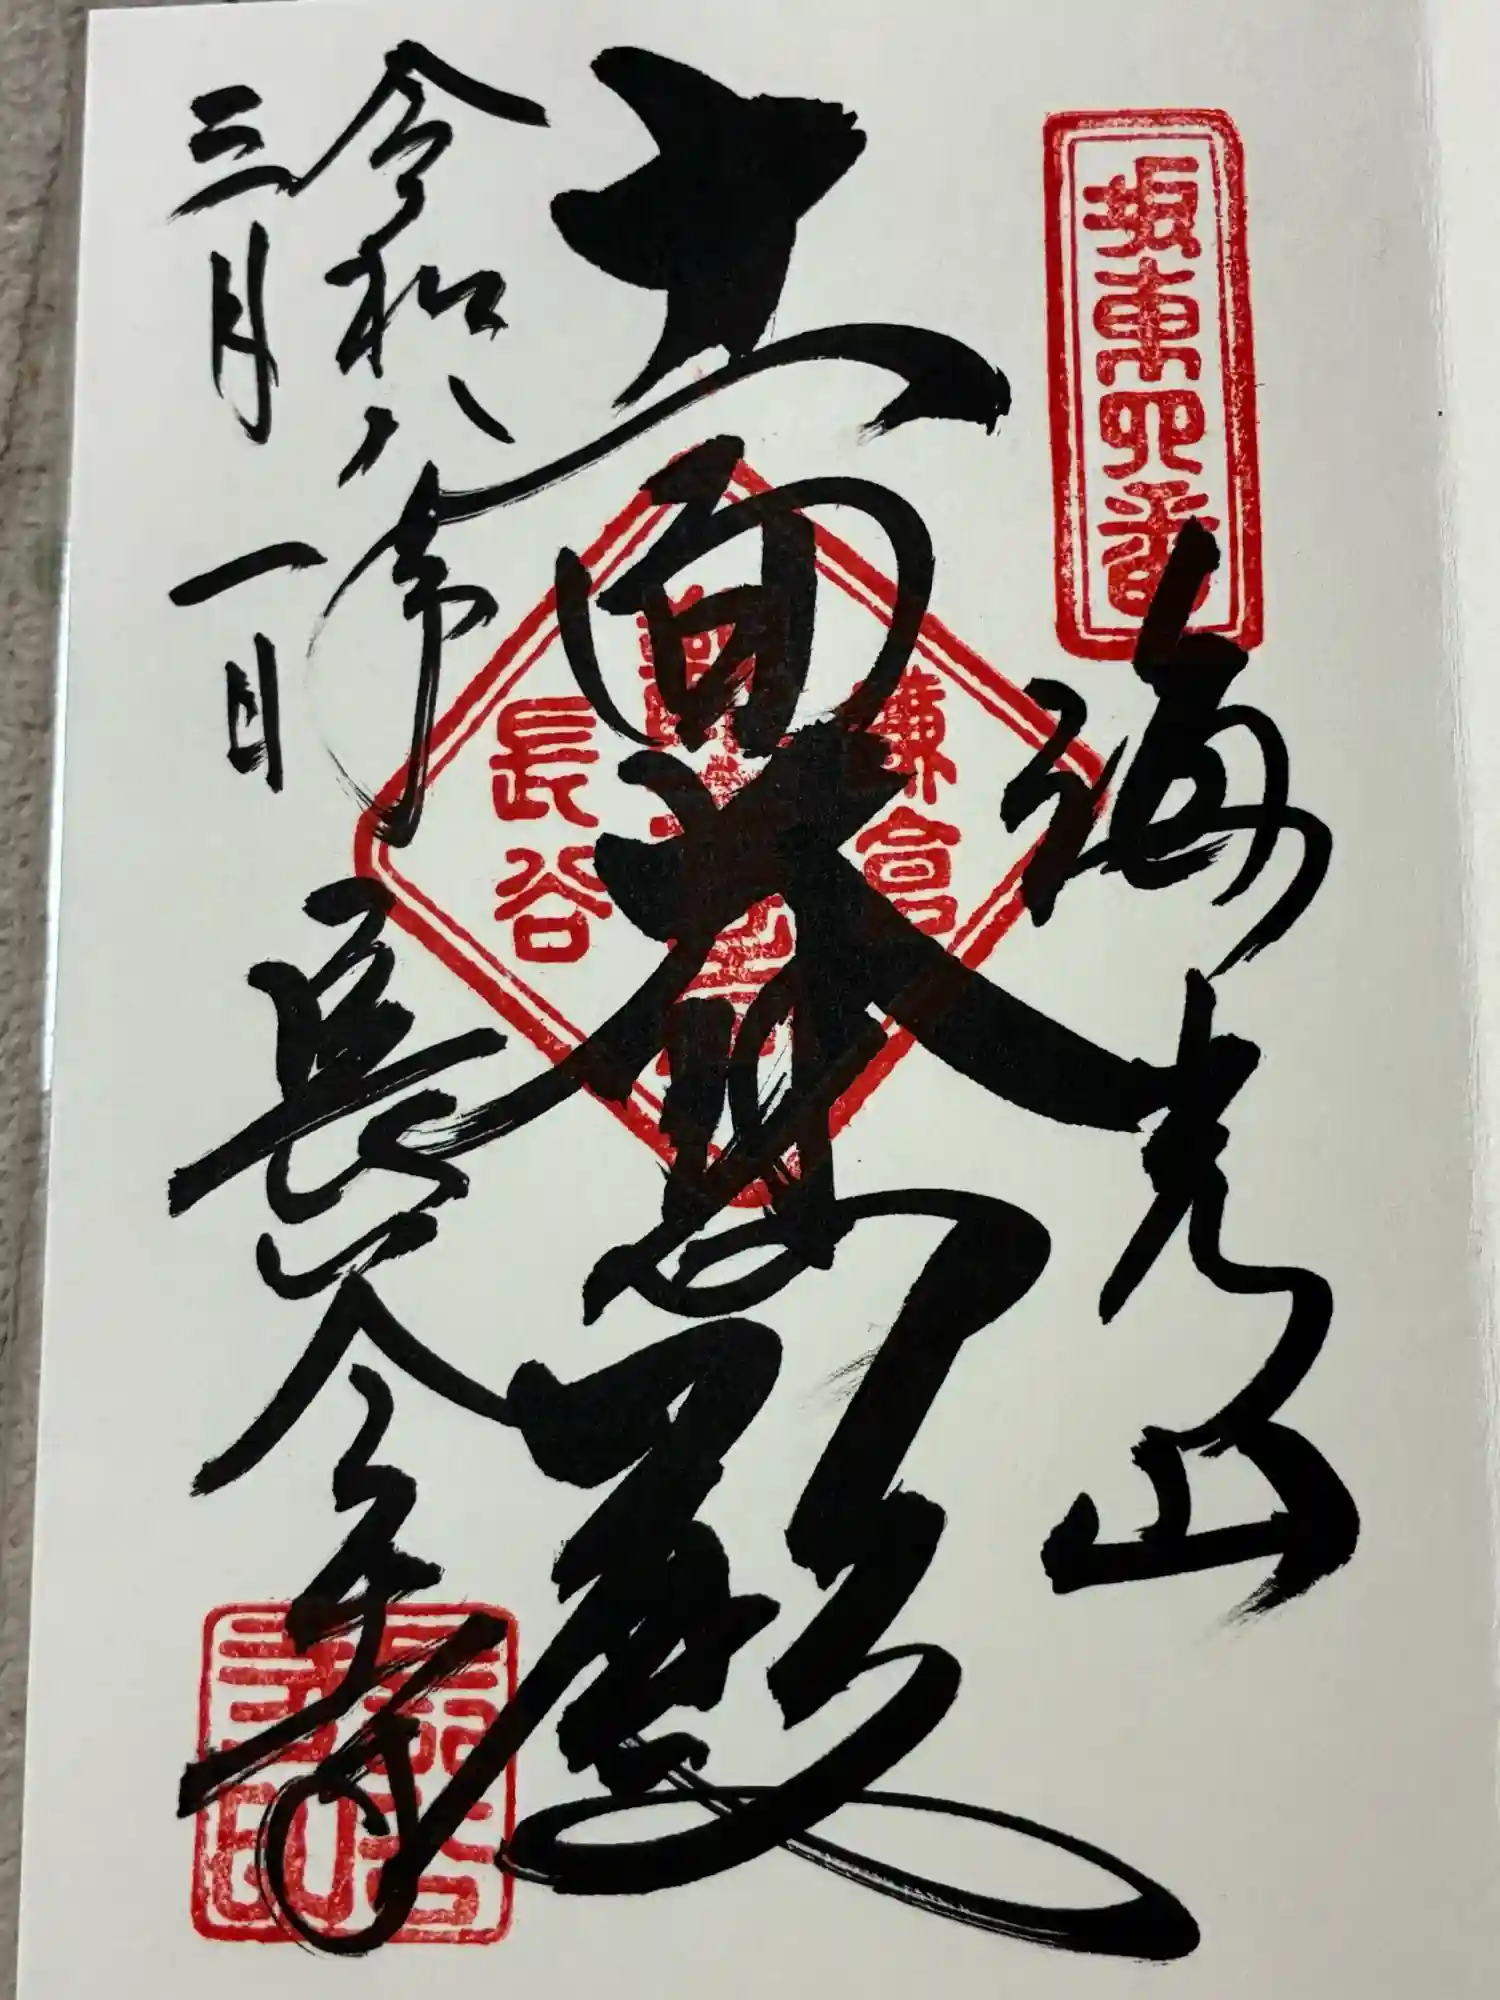 坂東四番
海光山
十一面大悲殿
鎌倉
長谷
令和八年
三月一日
長谷寺
長谷寺印